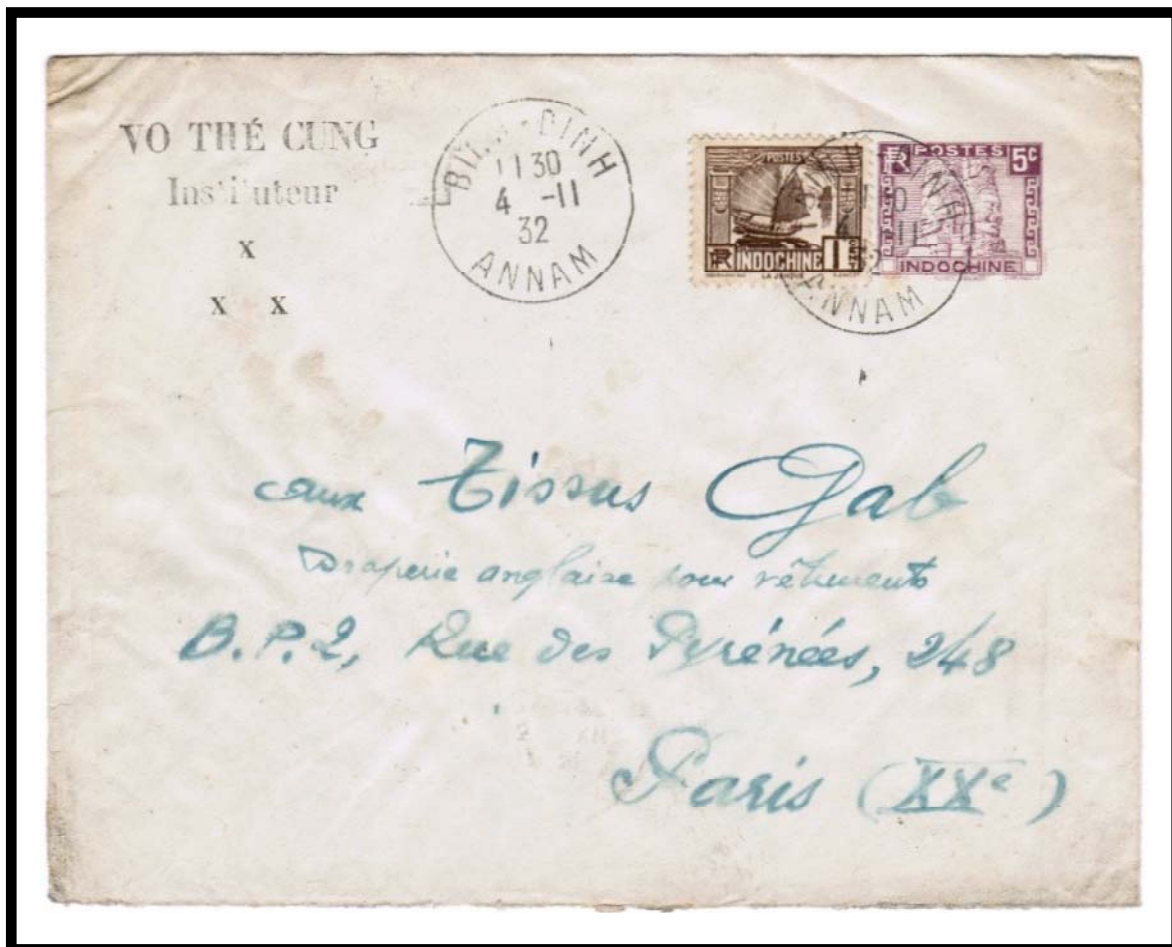 VO THÉ CUNG
Instituteur
x
x x
BINH-DINH
11 30
4 -11
32
ANNAM
POSTES
RF INDOCHINE 1 CENT
LA JONQUE
RF POSTES 5c
INDOCHINE
ANNAM
aux Tissus Gab
Draperie anglaise pour vêtements
B.P.2, Rue des Pyrénées, 248
Paris (XXe)